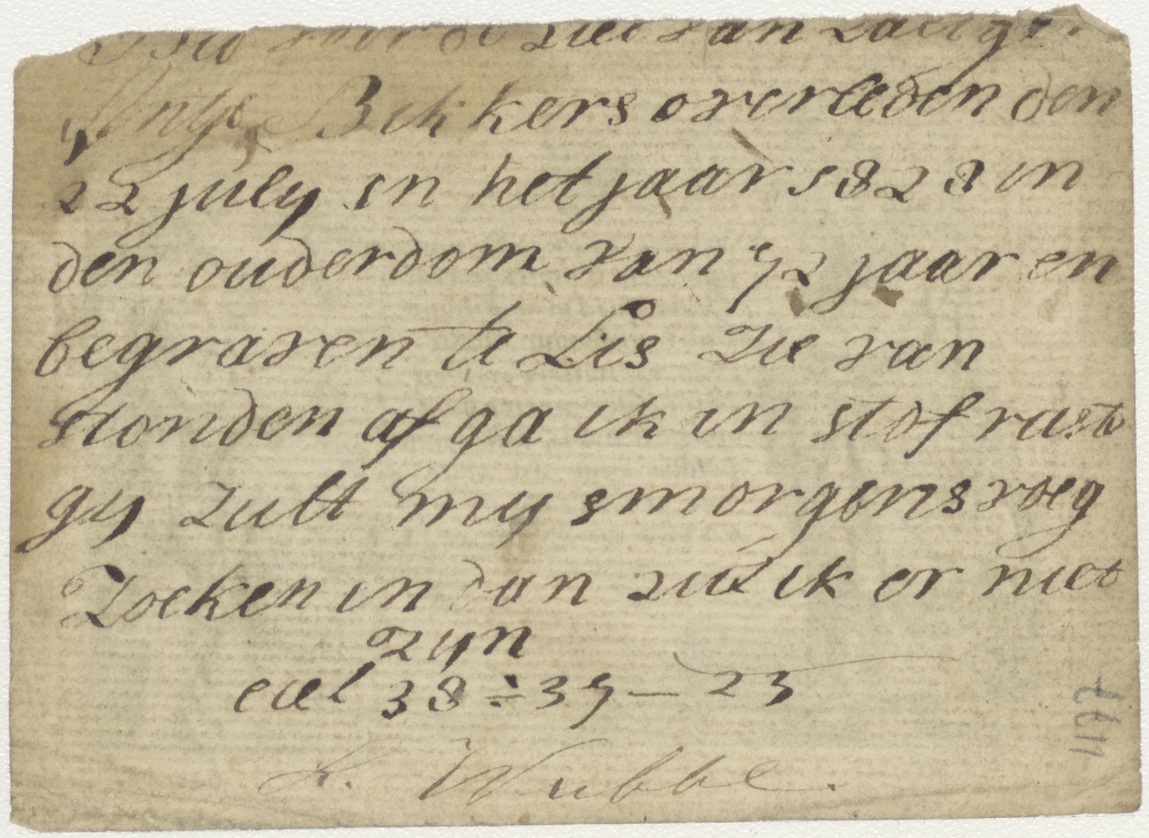 voor de ziel van zaliger
Antje Bekkers overleden den
22 july in het jaar 1828 in
den ouderdom van 72 jaar en
begraven te Lis Zie van
stonden af ga ik in stof rust
gy zult my smorgens vroeg
Zoeken in dan zul ik er niet
zyn
eccl 38 ÷ 39 — 23
Wubbe.